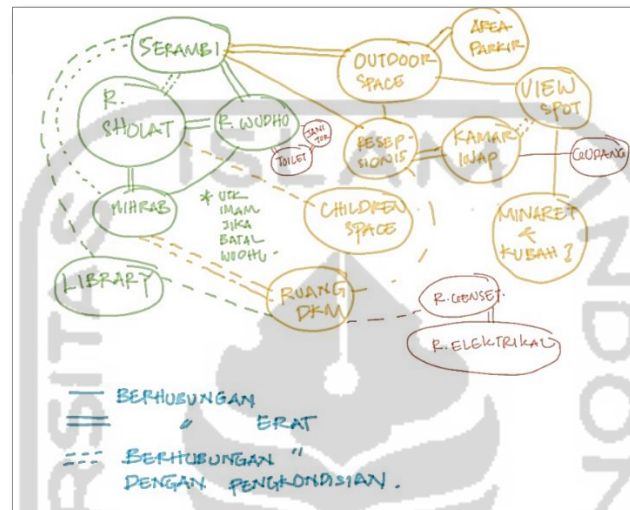 SERAMBI
OUTDOOR
SPACE
AREA
PARKIR
R.
SHOLAT
R. WUDHU
JANI
TOR
TOILET
RESEP-
SIONIS
KAMAR
INAP
VIEW
SPOT
GUDANG
MIHRAB
* UTK
IMAM
JIKA
BATAL
WUDHU
CHILDREN
SPACE
MINARET
&
KUBAH?
LIBRARY
RUANG
DKM
R. GENSET
R. ELEKTRIKAL
BERHUBUNGAN
" ERAT
BERHUBUNGAN "
DENGAN PENGKONDISIAN.
ISLAM
SITAS
NDON